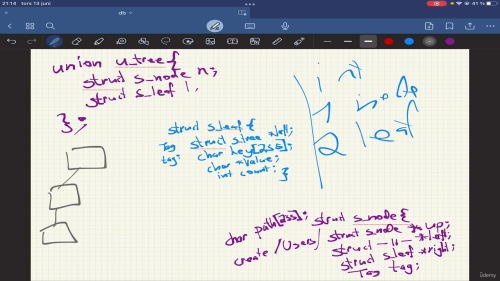 21:14 tors 13 juni
41 %
db
union u_tree {
struct s_node n;
struct s_leaf l,
};
struct s_leaf {
Tag struct s_tree *left;
tag; char key[255];
char *value;
int count;
}
1
2
char path[255]; struct s_node {
create /Users/ struct s_node *up;
struct -11- *left;
struct s_leaf *right;
Tag tag;
ûdemy